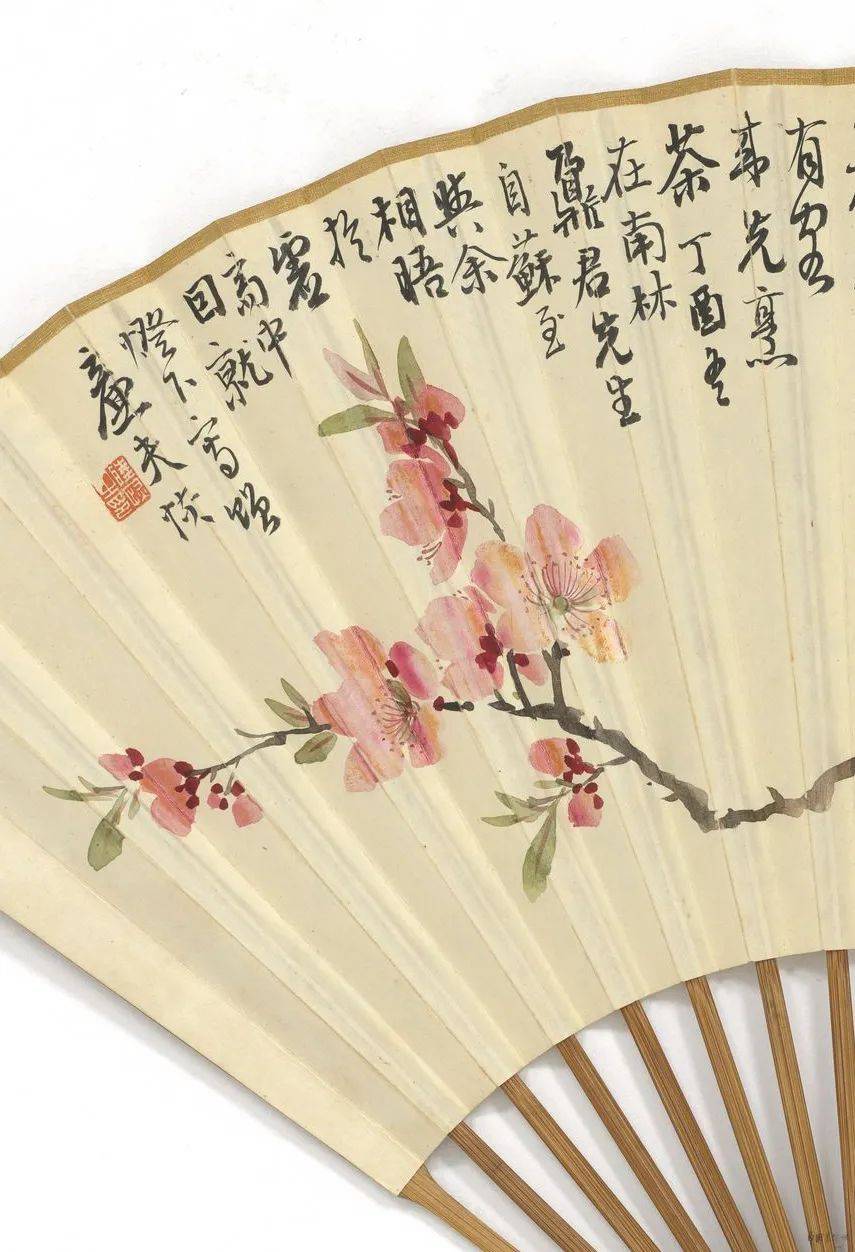 有客
來先烹
茶丁酉冬
在南林
鼐君先生
自蘇至
與余
相晤
於
高中
因就
燈下寫贈
廉夫恢